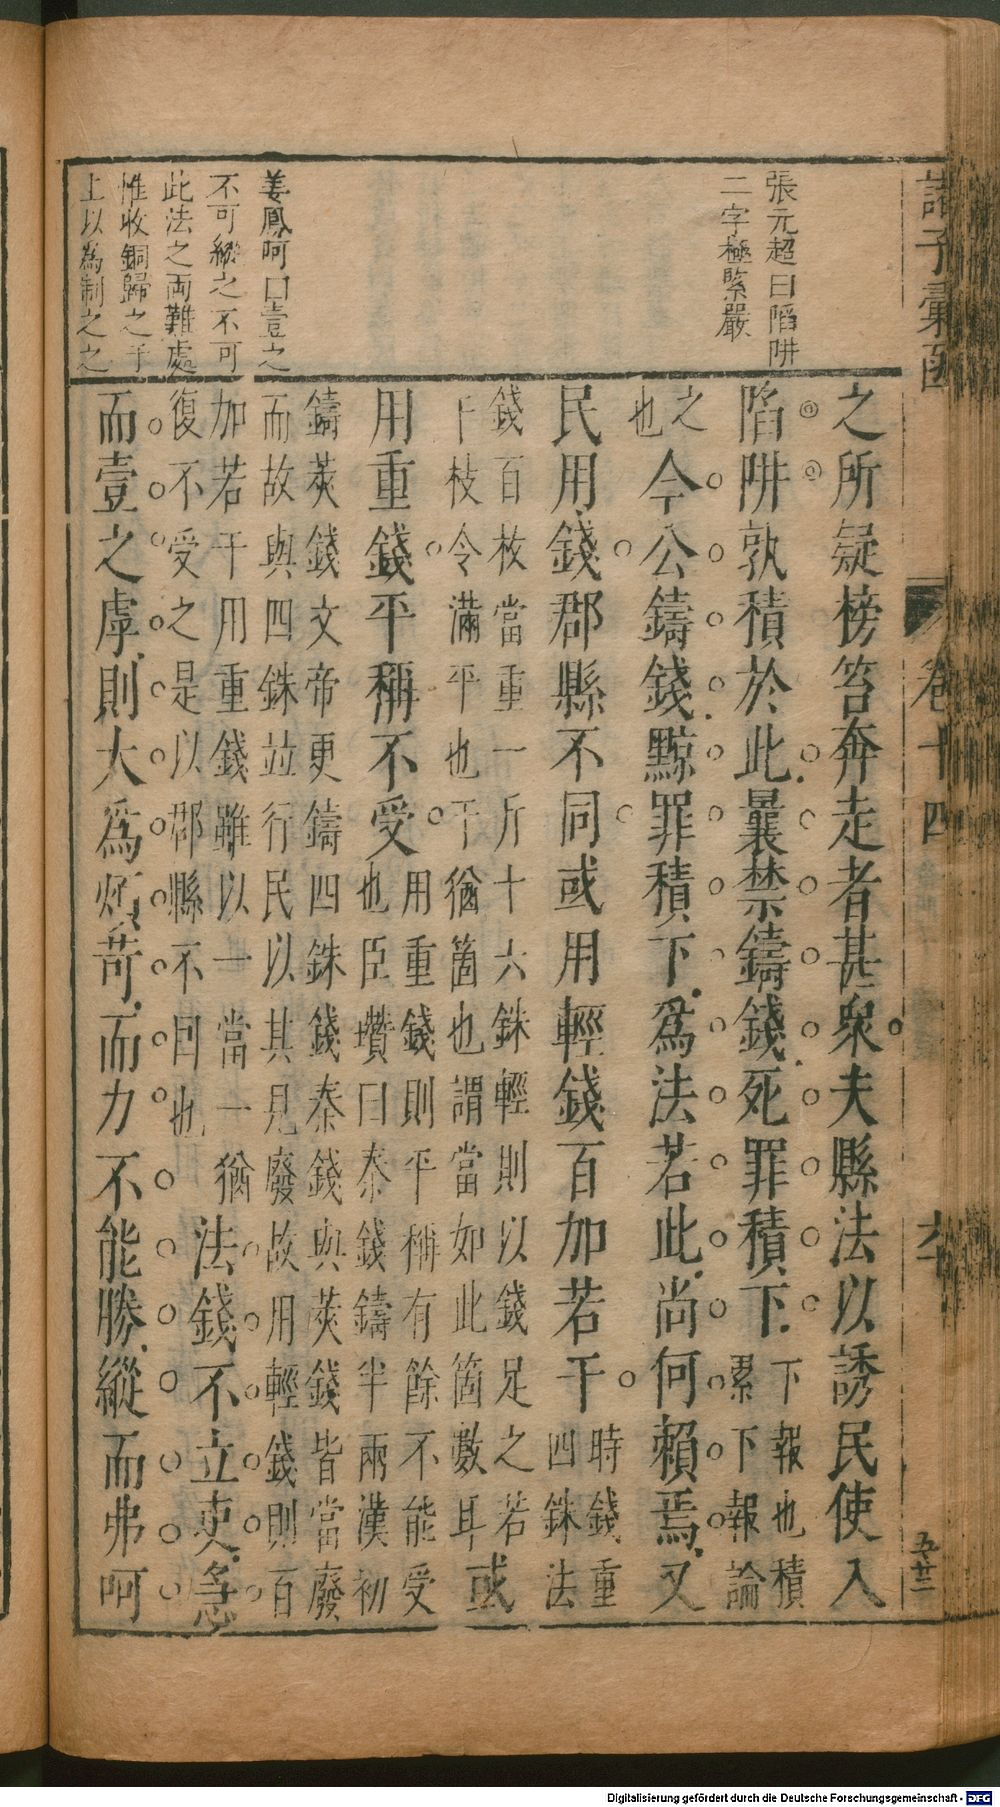 諸子彙函
卷十四
六十
五廿二
張元超曰陷阱
二字極緊嚴
姜鳳阿曰壹之
不可縱之不可
此法之両難處
惟收銅歸之于
上以為制之之
之所疑榜笞奔走者甚衆夫縣法以誘民使入
陷阱孰積於此曩禁鑄錢死罪積下
下報也積
累下報論
之
也
今公鑄錢黥罪積下為法若此尚何賴焉又
民用錢郡縣不同或用輕錢百加若干
時錢重
四銖法
錢百枚當重一斤十六銖輕則以錢足之若
干枝令滿平也干猶箇也謂當如此箇數耳
或
用重錢平稱不受
用重錢則平稱有餘不能受
也臣瓚曰秦錢鑄半兩漢初
鑄莢錢文帝更鑄四銖錢秦錢與莢錢皆當廢
而故與四銖竝行民以其見廢故用輕錢則百
加若干用重錢雖以一當一猶
復不受之是以郡縣不同也
法錢不立吏急
而壹之虖則大為煩苛而力不能勝縱而弗呵
Digitalisierung gefördert durch die Deutsche Forschungsgemeinschaft - DFG